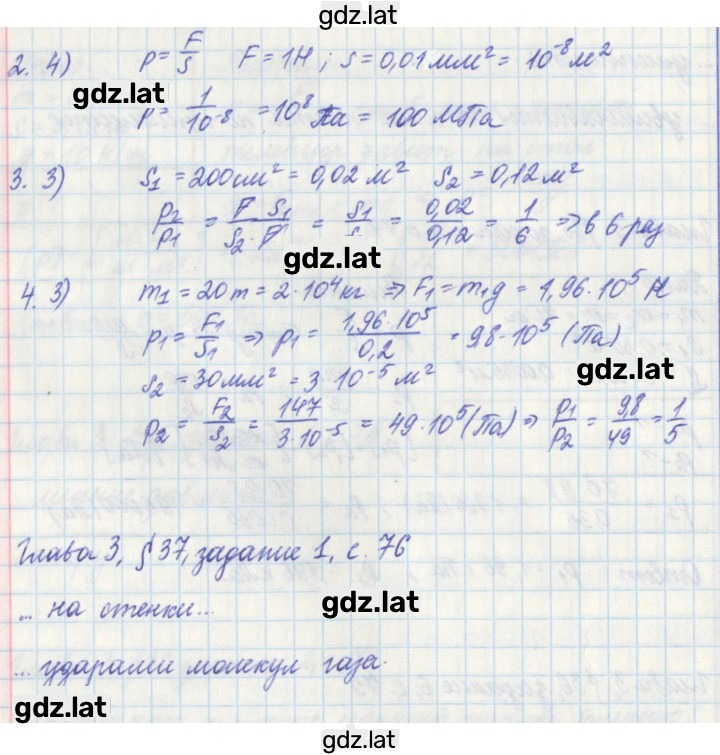 gdz.lat
2. 4) p = F/S F = 1Н; s = 0,01 мм² = 10⁻⁸ м²
gdz.lat
p = 1/10⁻⁸ = 10⁸ Па = 100 МПа
3. 3) S₁ = 200 см² = 0,02 м² S₂ = 0,12 м²
p₂/p₁ = F S₁/S₂·F = S₁/S = 0,02/0,12 = 1/6 ⇒ в 6 раз
gdz.lat
4. 3) m₁ = 20 т = 2·10⁴ кг ⇒ F₁ = m₁g = 1,96·10⁵ Н
p₁ = F₁/S₁ ⇒ p₁ = 1,96·10⁵/0,2 = 9,8·10⁵ (Па)
gdz.lat
S₂ = 30 мм² = 3·10⁻⁵ м²
p₂ = F₂/S₂ = 147/3·10⁻⁵ = 49·10⁵ (Па) ⇒ p₁/p₂ = 9,8/49 = 1/5
Глава 3, § 37, задание 1, с. 76
gdz.lat
... на стенки...
... ударами молекул газа.
gdz.lat
gdz.lat